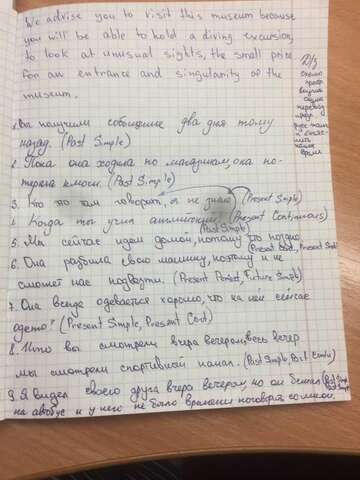 We advise you to visit this museum because
you will be able to hold a diving excursion,
to look at unusual sights, the small price
for an entrance and singularity of the
museum.
Д/з
1. Вы получили сообщение два дня тому
назад. (Past Simple)
2. Пока она ходила по магазинам, она по-
теряла ключи. (Past Simple)
3. Кто это там говорит, я не знаю (Present Simple)
4. Когда ты учил английский (Present Continuous)
(Past Simple)
5. Мы сейчас идем домой, потому что поздно
(Present Cont, Present Simp)
6. Она разбила свою машину, поэтому и не
сможет нас подвезти. (Present Perfect, Future Simple)
7. Она всегда одевается хорошо, что на ней сейчас
одето? (Present Simple, Present Cont)
8. Что вы смотрели вчера вечером, весь вечер
мы смотрели спортивный канал. (Past Simple Past Contin)
9. Я видел своего друга вчера вечером, но он бежал (Past Simp
на автобус и у него не было времени поговорить со мной.